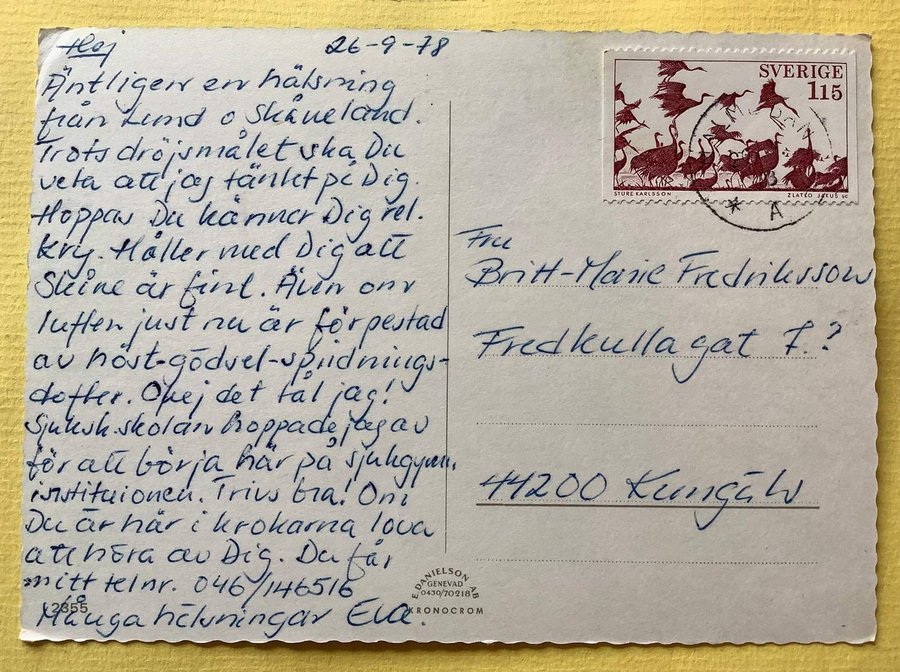 Hej 26-9-78
Äntligen en hälsning
från Lund o Skåneland.
Trots dröjsmålet ska Du
veta att jag tänkt på Dig.
Hoppas Du känner Dig rel.
kry. Håller med Dig att
Skåne är fint. Även om
luften just nu är förpestad
av höst-gödsel-spridnings-
dofter. Okej det tål jag!
Sjuksk.skolan hoppade jag av
för att börja här på sjukgymn.
institutionen. Trivs bra! Om
Du är här i krokarna lova
att höra av Dig. Du får
mitt telnr. 046/146516
Många hälsningar Eva.
12355
SVERIGE
115
STURE KARLSSON ZLATKO JAKUŠ SC
A
Fru
Britt-Marie Fredriksson
Fredkullagat 7.?
44200 Kungälv
E. DANIELSON AB
GENEVAD
0430/70218
KRONOCROM